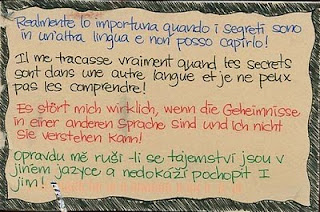 Realmente lo importuna quando i segreti sono
in un'altra lingua e non posso capirlo!
Il me tracasse vraiment quand tes secrets
sont dans une autre langue et je ne peux
pas les comprendre!
Es stört mich wirklich, wenn die Geheimnisse
in einer anderen Sprache sind und ich nicht
sie verstehen kann!
Opravdu mě ruší -li se tajemství jsou v
jiném jazyce a nedokáží pochopit I
jim!